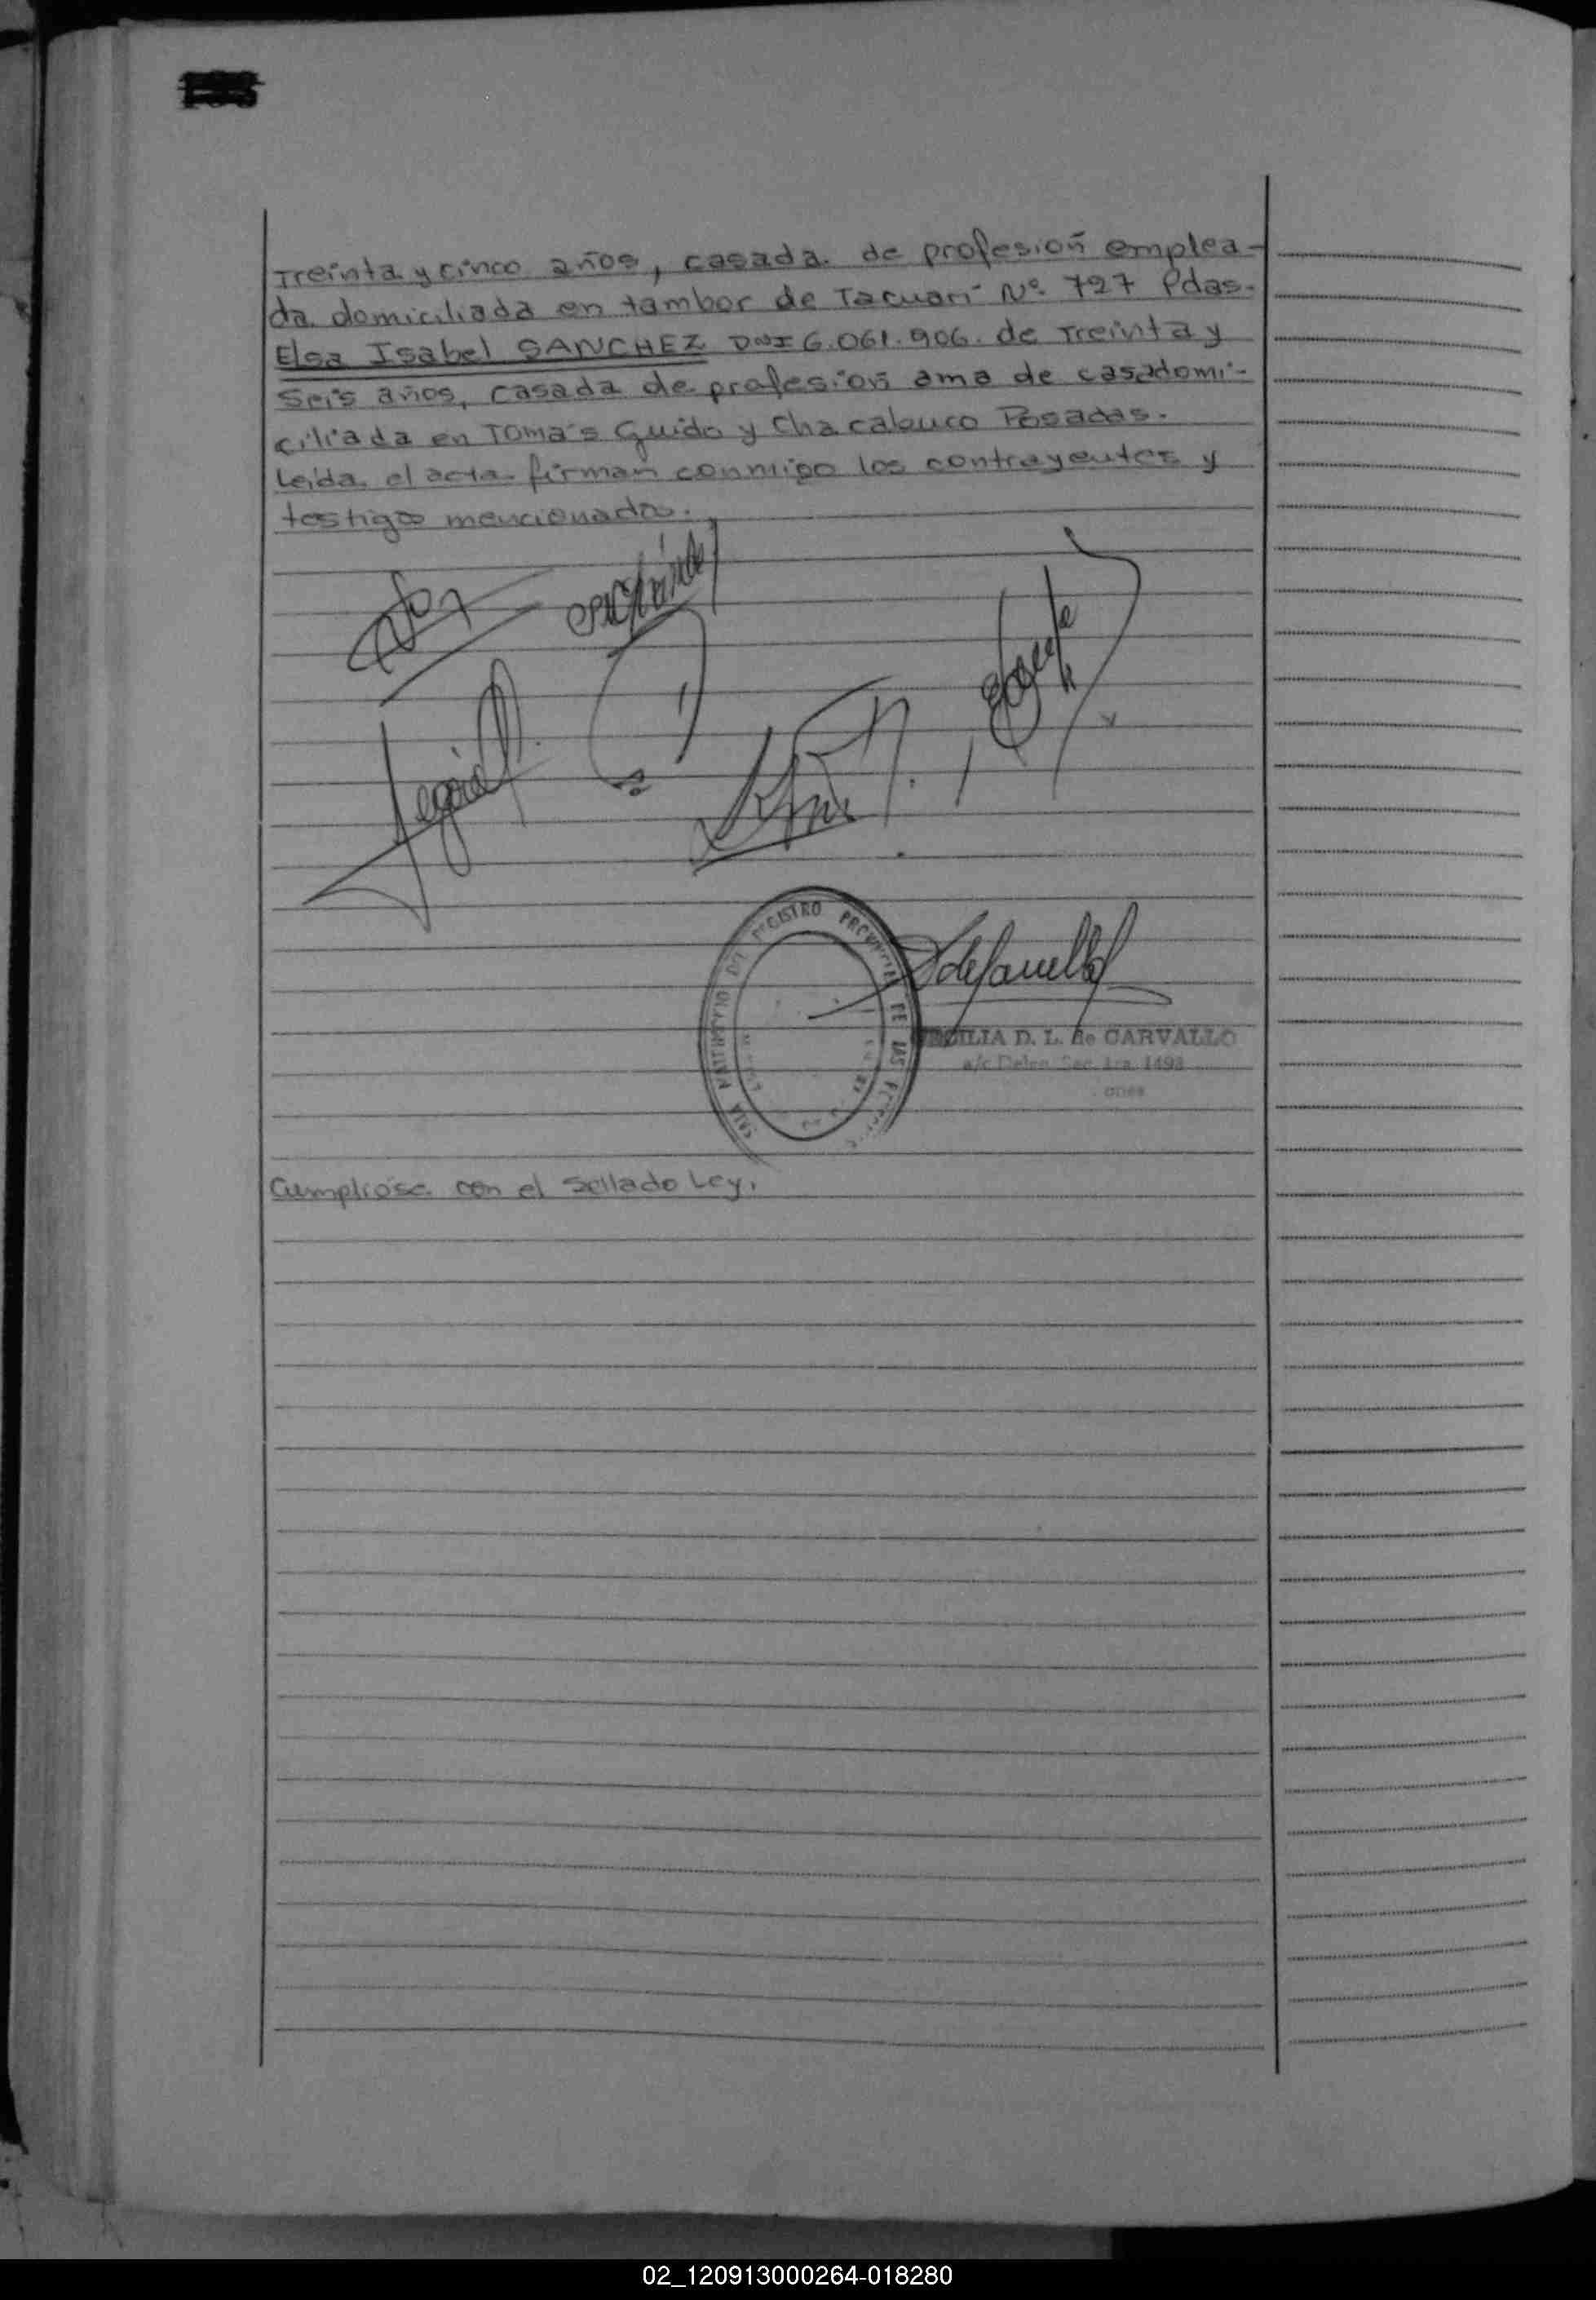 Treinta y cinco años, casada de profesión emplea-
da domiciliada en tambor de Tacuarí Nº 727 Pdas.
Elsa Isabel SANCHEZ DNI 6.061.906. de Treinta y
Seis años, casada de profesión ama de casa domi-
ciliada en Tomás Guido y Chacabuco Posadas.
Leida el acta firman conmigo los contrayentes y
testigos mencionados.
REGISTRO PROVINCIAL DE LAS
CILIA D. L. de CARVALLO
a/c Deleg. Sec. 1ra. 1493
ones
Cumplióse con el Sellado Ley.
02_120913000264-018280